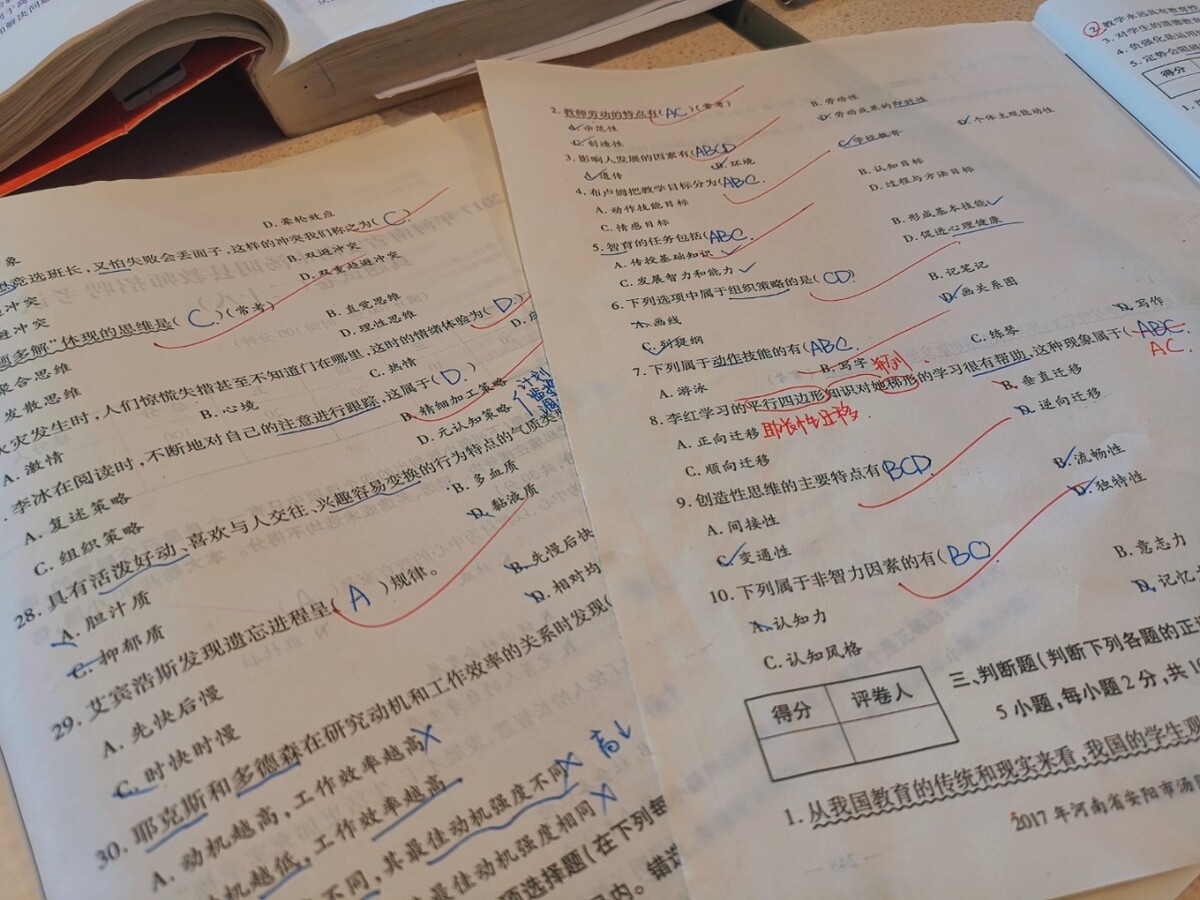 D. 晕轮效应
竞选班长,又怕失败会丢面子,这样的冲突我们称之为( C )
B. 双避冲突
D. 双重趋避冲突
题多解”体现的思维是( C )(常考)
聚合思维
B. 直觉思维
发散思维
D. 理性思维
火灾发生时,人们惊慌失措甚至不知道门在哪里,这时的情绪体验为( D )
A. 激情
B. 心境
C. 热情
李冰在阅读时,不断地对自己的注意进行跟踪,这属于( D )
A. 复述策略
B. 精细加工策略
C. 组织策略
D. 元认知策略
计划
28. 具有活泼好动、喜欢与人交往、兴趣容易变换的行为特点的气质类
A. 胆汁质
B. 多血质
C. 抑郁质
D. 黏液质
29. 艾宾浩斯发现遗忘进程呈( A )规律。
A. 先快后慢
B. 先慢后快
C. 时快时慢
D. 相对均
30. 耶克斯和多德森在研究动机和工作效率的关系时发现(
A. 动机越高,工作效率越高
机越低,工作效率越高
不同,其最佳动机强度不同
高↓
最佳动机强度相同
项选择题(在下列每
内。错选
2. 教师劳动的特点有( AC )(常考)
A. 示范性
B. 劳动性
C. 创造性
D. 劳动成果的即时性
3. 影响人发展的因素有( ABCD
A. 遗传
B. 环境
C. 学校教育
D. 个体主观能动性
4. 布卢姆把教学目标分为( ABC.
A. 动作技能目标
B. 认知目标
C. 情感目标
D. 过程与方法目标
5. 智育的任务包括( ABC.
A. 传授基础知识
B. 形成基本技能
C. 发展智力和能力
D. 促进心理健康
6. 下列选项中属于组织策略的是( CD )
A. 画线
B. 记笔记
C. 列提纲
D. 画关系图
7. 下列属于动作技能的有( ABC.
A. 游泳
B. 写字
C. 练琴
D. 写作
8. 李红学习的平行四边形知识对她梯形的学习很有帮助,这种现象属于( ABC.
AC.
A. 正向迁移
B. 垂直迁移
C. 顺向迁移
D. 逆向迁移
9. 创造性思维的主要特点有 BCD.
A. 间接性
B. 流畅性
C. 变通性
D. 独特性
10. 下列属于非智力因素的有( BC
A. 认知力
B. 意志力
C. 认知风格
D. 记忆
得分
评卷人
三、判断题(判断下列各题的正
5小题,每小题2分,共1
1. 从我国教育的传统和现实来看,我国的学生观
2017年河南省安阳市汤
2. 教学永远具有教育性
3. 对学生的道德教
4. 负强化是运用
5. 定势会阻
得分